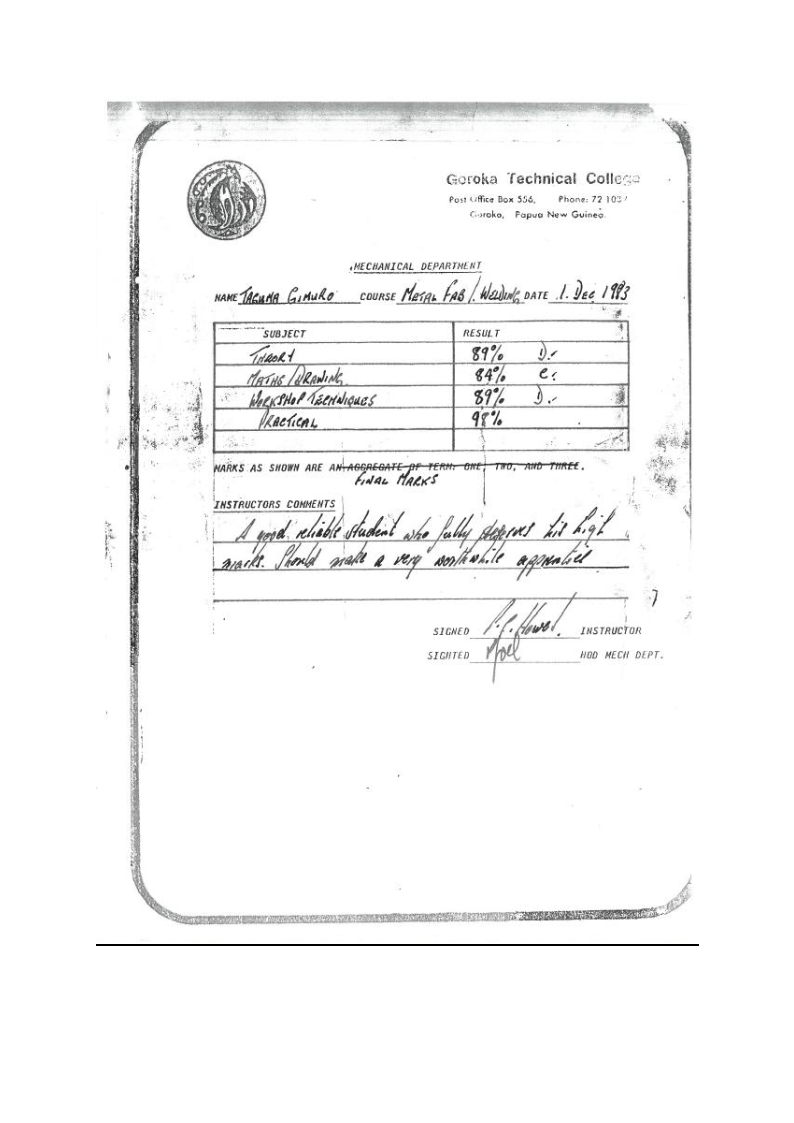 Goroka Technical College
Post Office Box 556, Phone: 72 103
Goroka, Papua New Guinea.
MECHANICAL DEPARTMENT
NAME TAGUMA GIMURO COURSE METAL FAB /. WELDING DATE 1. DEC 1993
SUBJECT RESULT
THEORY 89% D.
MATHS/DRAWING 84% C.
WORKSHOP TECHNIQUES 89% D.
PRACTICAL 98%
MARKS AS SHOWN ARE AN AGGREGATE OF TERM. ONE, TWO, AND THREE.
FINAL MARKS
INSTRUCTORS COMMENTS
A good reliable student who fully deserves his high
marks. Should make a very worthwhile
SIGNED INSTRUCTOR
SIGHTED HOD MECH DEPT.